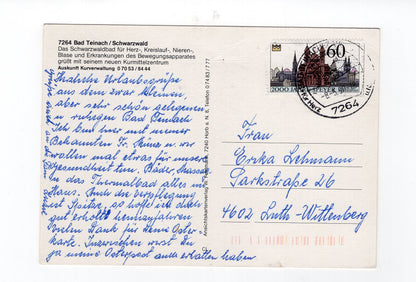 7264 Bad Teinach/Schwarzwald
Das Schwarzwaldbad für Herz-, Kreislauf-, Nieren-,
Blase und Erkrankungen des Bewegungsapparates
grüßt mit seinem neuen Kurmittelzentrum
Auskunft Kurverwaltung 07053/8444
Herzliche Urlaubsgrüße
aus dem zwar kleinen,
aber sehr schön gelegenen
u. ruhigen Bad Teinach
Ich bin hier mit meiner
Bekannten Fr. und wir
wollen mal etwas für unsere
Gesundheit tun. Bäder, Massagen
In das Thermalbad alles im
Haus. Auch die Verpflegung
ist Spitze, so hoffe ich, direkt
gut erholt heimzufahren
Vielen Dank für Deine Oster-
karte. Inzwischen wirst Du
ja meine Osterpost auch erhalten haben
7240 Horb a. N. 8, Telefon 07483/777
60
2000 JAHRE SPEYER
7264
Frau
Erika Lehmann
Parkstraße 26
4602 Luth-Wittenberg